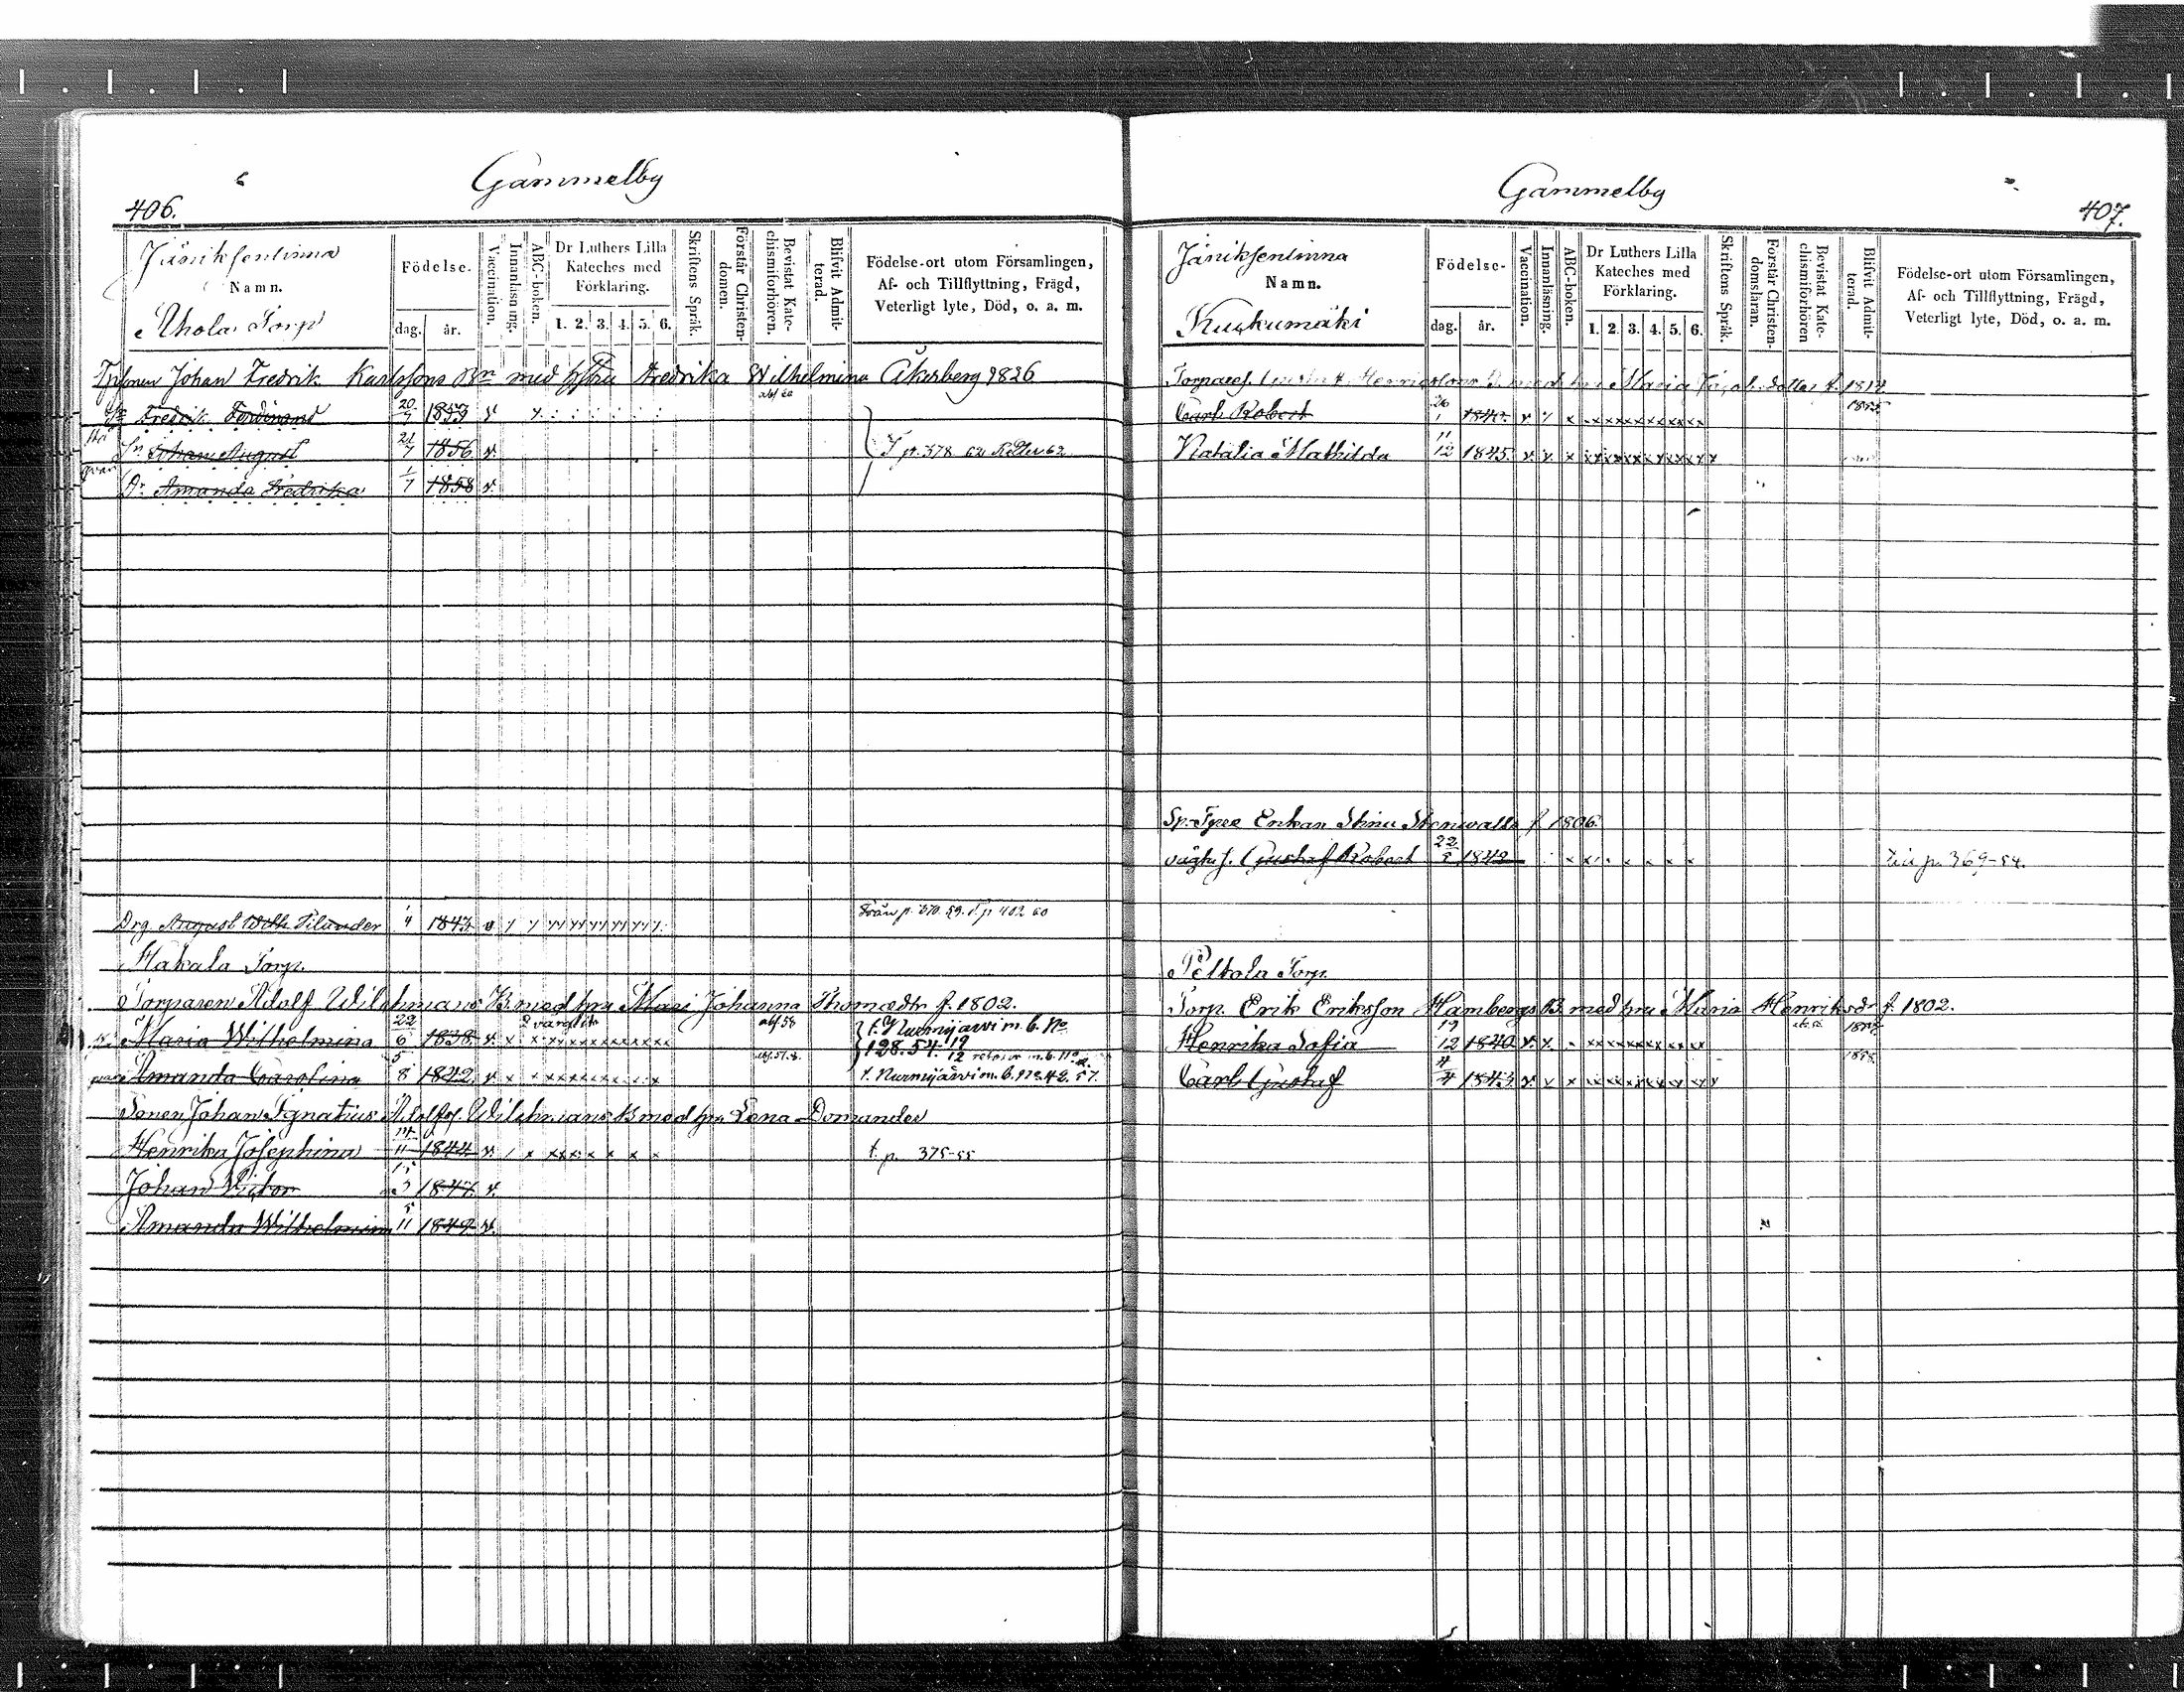 Gammelby
406.
Jäniksenlinna
Namn.
Ahola Torp
Födelse.
dag. år.
Vaccination.
Innanläsning.
ABC-boken.
Dr Luthers Lilla Kateches med Förklaring.
1. 2. 3. 4. 5. 6.
Skriftens Språk.
Förstår Christen-domen.
Bevistat Kate-chismiförhören.
Blifvit Admit-terad.
Födelse-ort utom Församlingen, Af- och Tillflyttning, Frägd, Veterligt lyte, Död, o. a. m.
Johan Fredrik Karlssons Bn med hustru Fredrika Wilhelmina Åkerberg 1826
Fredrik Ferdinand 20/9 1853
Sn Johan August 21/7 1856 T. p. 378 62
Dr Amanda Fredrika 1/7 1858
Drg. August Wilh. Silander 1/4 1843 Från p. 370. 59. T. p 402 60
Hakala Torp.
Torparen Adolf Wilehmans B med hru Mari Johanna Thomædtr f. 1802.
Maria Wilhelmina 22/6 1838 t. Nurmijärvi m. b. No 128. 54.
Amanda Carolina 5/8 1842 t. Nurmijärvi m. b. No 42. 57.
Sonen Johan Ignatius Adolfss. Wilehmans B med hru Lena Domander
Henrika Josephina 14/11 1844 t. p. 375-55
Johan Victor 15/3 1847
Amanda Wilhelmina 5/11 1849
Gammelby
407.
Jäniksenlinna
Namn.
Kuskumäki
Födelse-
dag. år.
Vaccination.
Innanläsning.
ABC-boken.
Dr Luthers Lilla Kateches med Förklaring.
1. 2. 3. 4. 5. 6.
Skriftens Språk.
Förstår Christen-domsläran.
Bevistat Kate-chismiförhören
Blifvit Admit-terad.
Födelse-ort utom Församlingen, Af- och Tillflyttning, Frägd, Veterligt lyte, Död, o. a. m.
Henrikssons B med hru Maria Jacobsdotter f. 1812
Carl Robert 26/1 1840
Natalia Mathilda 11/12 1845
Enkan Stina Stenwalls f. 1806.
Gustaf Robert 22/5 1842 p. 369-54.
Peltola Torp.
Torp. Erik Eriksson Hambergs B med hru Maria Henriksdr f. 1802.
Henrika Sofia 19/12 1840
Carl Gustaf 4/4 1843